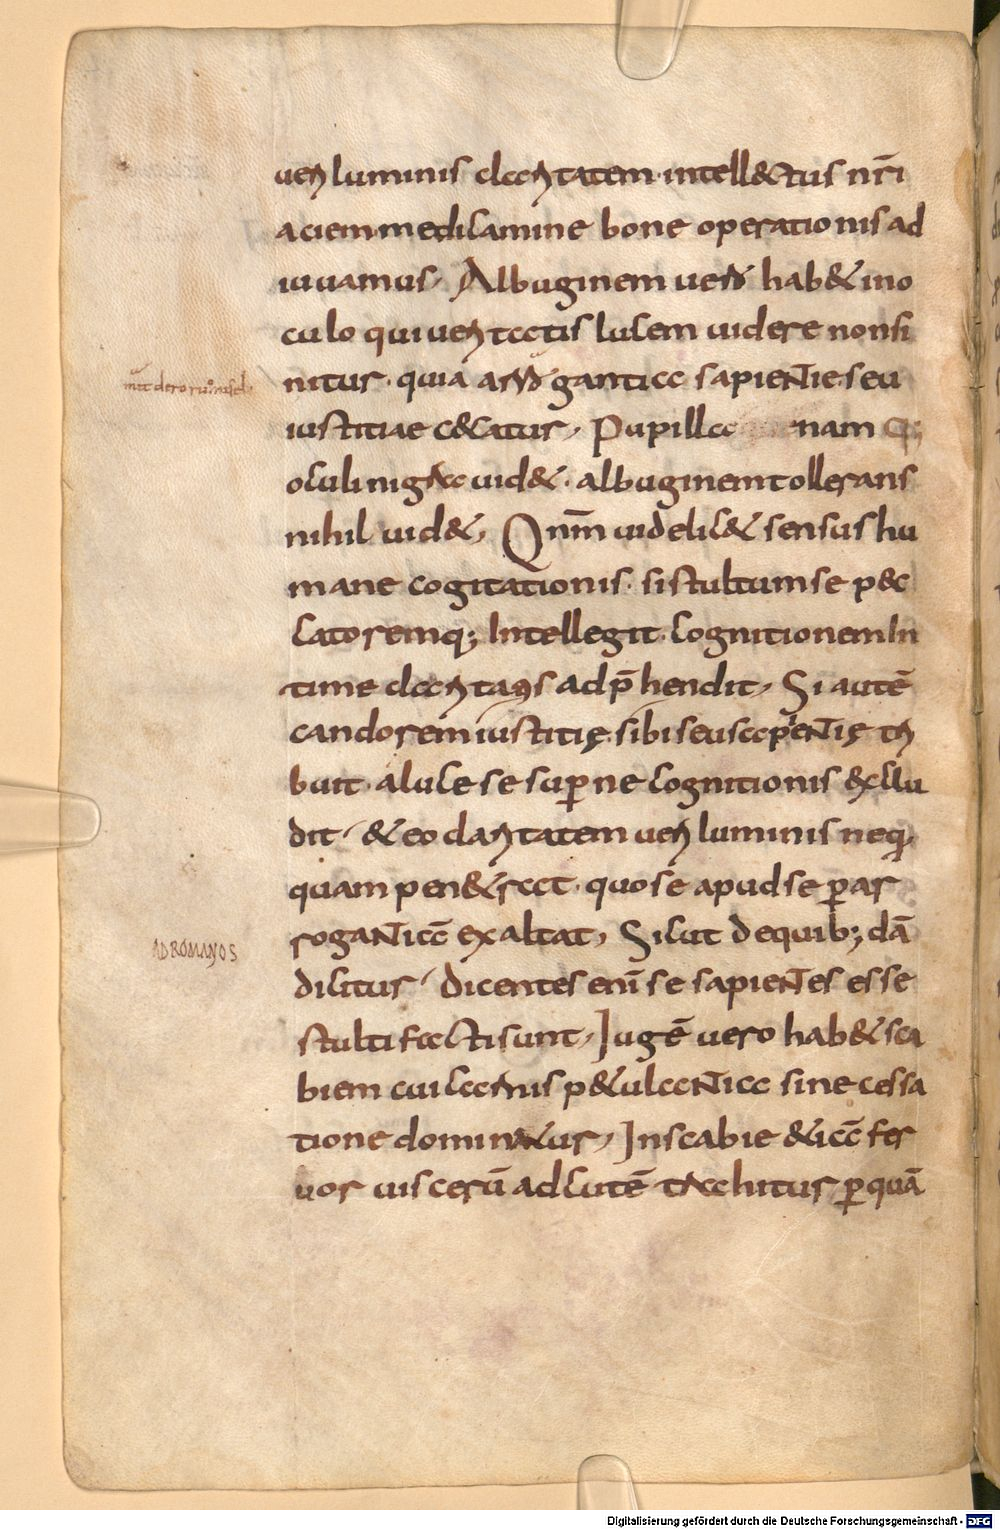 ueri luminis claritatem intellectus nr̄i
aciem medicamine bone operationis ad
iuuamus, Albuginem uero hab& in o
culo qui ueritatis lucem uidere non si
nitur. quia arrogantia sapientie seu
iustitiae cecatur, Pupilla nam q;
oculi nigra uid&. albuginem tollerans
nihil uid&, Qnm̄ uidelic& sensus hu
mane cogitationis. si stultum se p&c
catoremq; intellegit. cognitionem in
time claritatis adp̄hendit, Si autē
candorem iustitię sibi seu sapientię tri
buit. a luce se supꝑne cognitionis excllu
dit, & eo claritatem ueri luminis neq;
quam pen&rat. quo se apud se ꝑ ar
rogantiā exaltat, Sicut de quib; dā
dicitur, Dicentes eni se sapientes esse
stulti facti sunt, Jugē vero hab& sca
biem cui carnis p&ulantia sine cessa
tione dominatur, In scabie &iā fer
uor uiscerū ad cutē trahitur ꝑ quā
AD ROMANOS
Digitalisierung gefördert durch die Deutsche Forschungsgemeinschaft - DFG